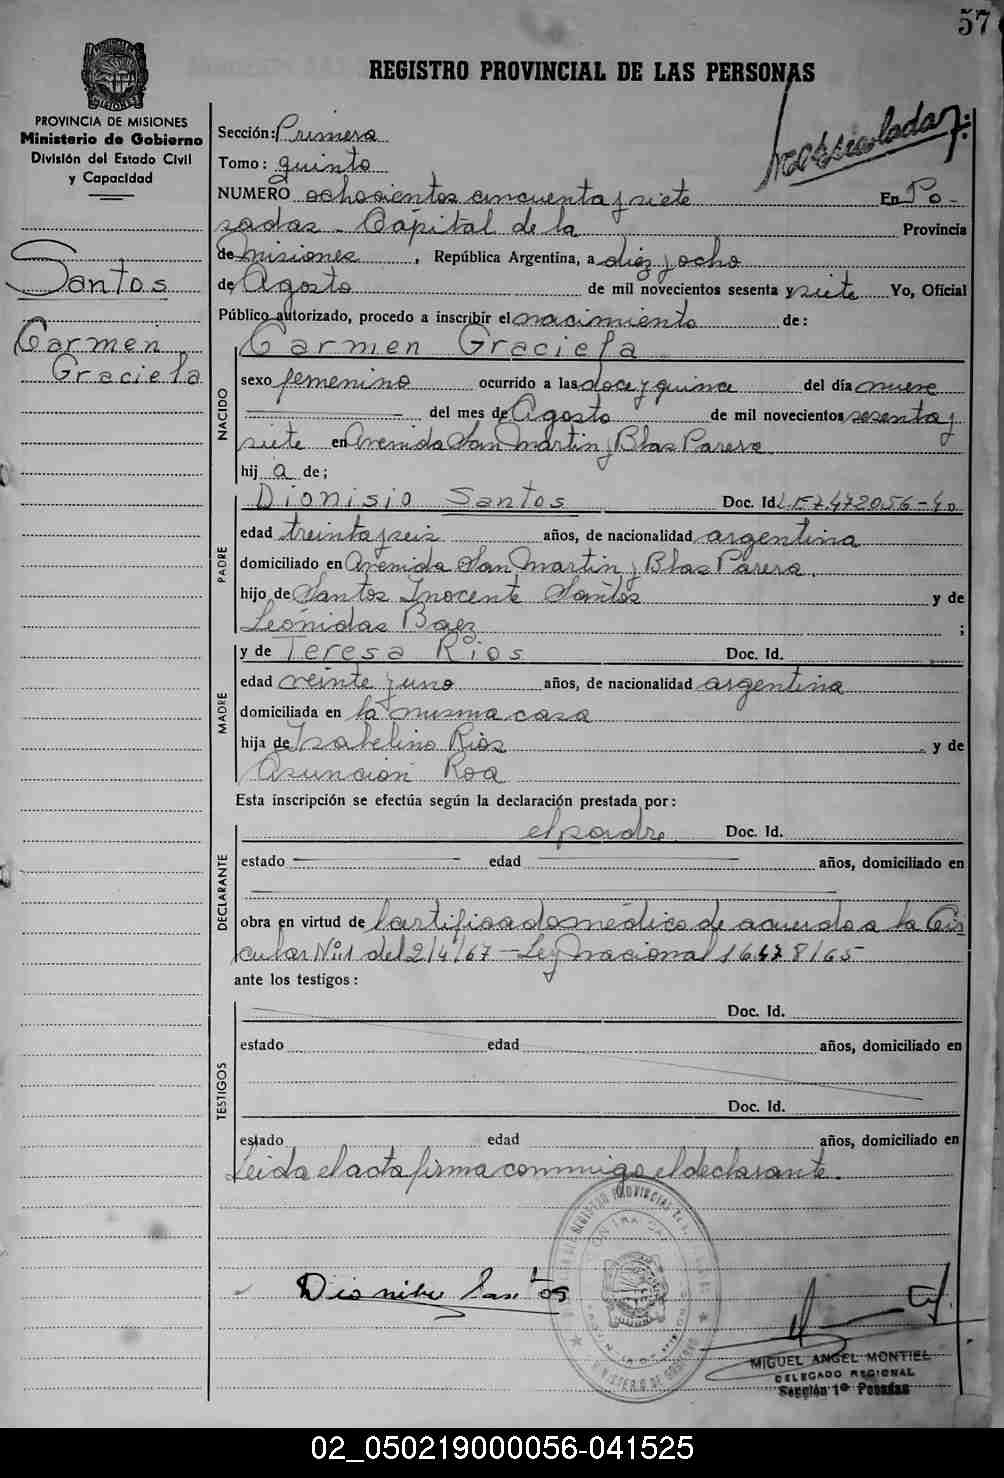 57
REGISTRO PROVINCIAL DE LAS PERSONAS
PROVINCIA DE MISIONES
Ministerio de Gobierno
División del Estado Civil
y Capacidad
Santos
Carmen
Graciela
Sección: Primera
Tomo: quinto
NUMERO ochocientos cincuenta y siete En Po-
sadas - Capital de la Provincia
de Misiones, República Argentina, a diez y ocho
de Agosto de mil novecientos sesenta y siete Yo, Oficial
Público autorizado, procedo a inscribir el nacimiento de:
Carmen Graciela
NACIDO
sexo femenino ocurrido a las doce y quince del día nueve
del mes de Agosto de mil novecientos sesenta y
siete en Avenida San Martin y Blas Parera
hij a de;
PADRE
Dionisio Santos Doc. Id. L.E 7.472056-40
edad treinta y seis años, de nacionalidad argentina
domiciliado en Avenida San Martin y Blas Parera.
hijo de Santos Inocente Santos y de
Leónidas Baez ;
MADRE
y de Teresa Rios Doc. Id.
edad veinte y uno años, de nacionalidad argentina
domiciliada en la misma casa
hija de Isabelino Rios y de
Asunción Roa
Esta inscripción se efectúa según la declaración prestada por:
DECLARANTE
el padre Doc. Id.
estado edad años, domiciliado en
obra en virtud de Certificado médico de acuerdo a la Cir
cular Nº 11 del 2/4/67 - Ley nacional 16.478/65
ante los testigos:
TESTIGOS
Doc. Id.
estado edad años, domiciliado en
Doc. Id.
estado edad años, domiciliado en
Leida el acta firma conmigo el declarante.
Dionisio Santos
MIGUEL ANGEL MONTIEL
DELEGADO REGIONAL
Sección 1ª Posadas
02_050219000056-041525